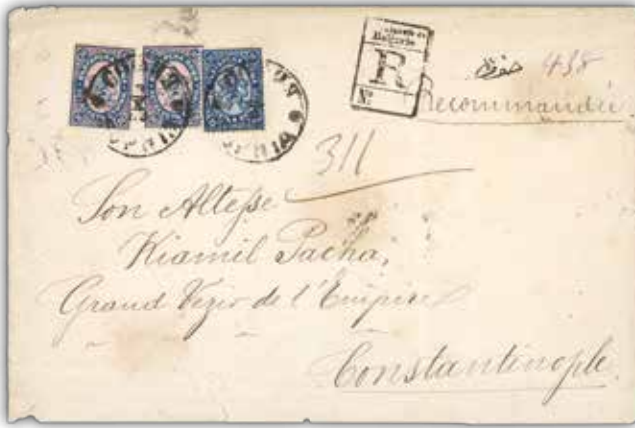 Bulgarie
R
No
438
Recommandée
311
Son Altesse
Kiamil Pacha,
Grand Vezir de l'Empire
Constantinople.